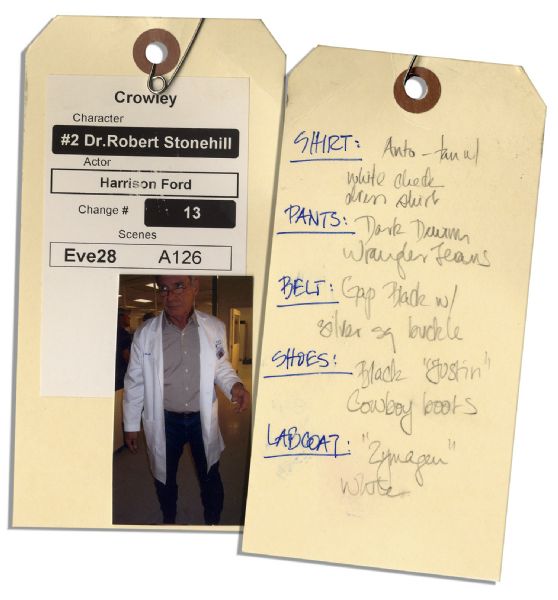 Crowley
Character
#2 Dr.Robert Stonehill
Actor
Harrison Ford
Change # 13
Scenes
Eve28 A126
SHIRT: Anto - tan w/
white check
dress shirt
PANTS: Dark
Wrangler Jeans
BELT: Gap Black w/
silver sq buckle
SHOES: Black "Justin"
Cowboy boots
LABCOAT: "Zymagen"
White